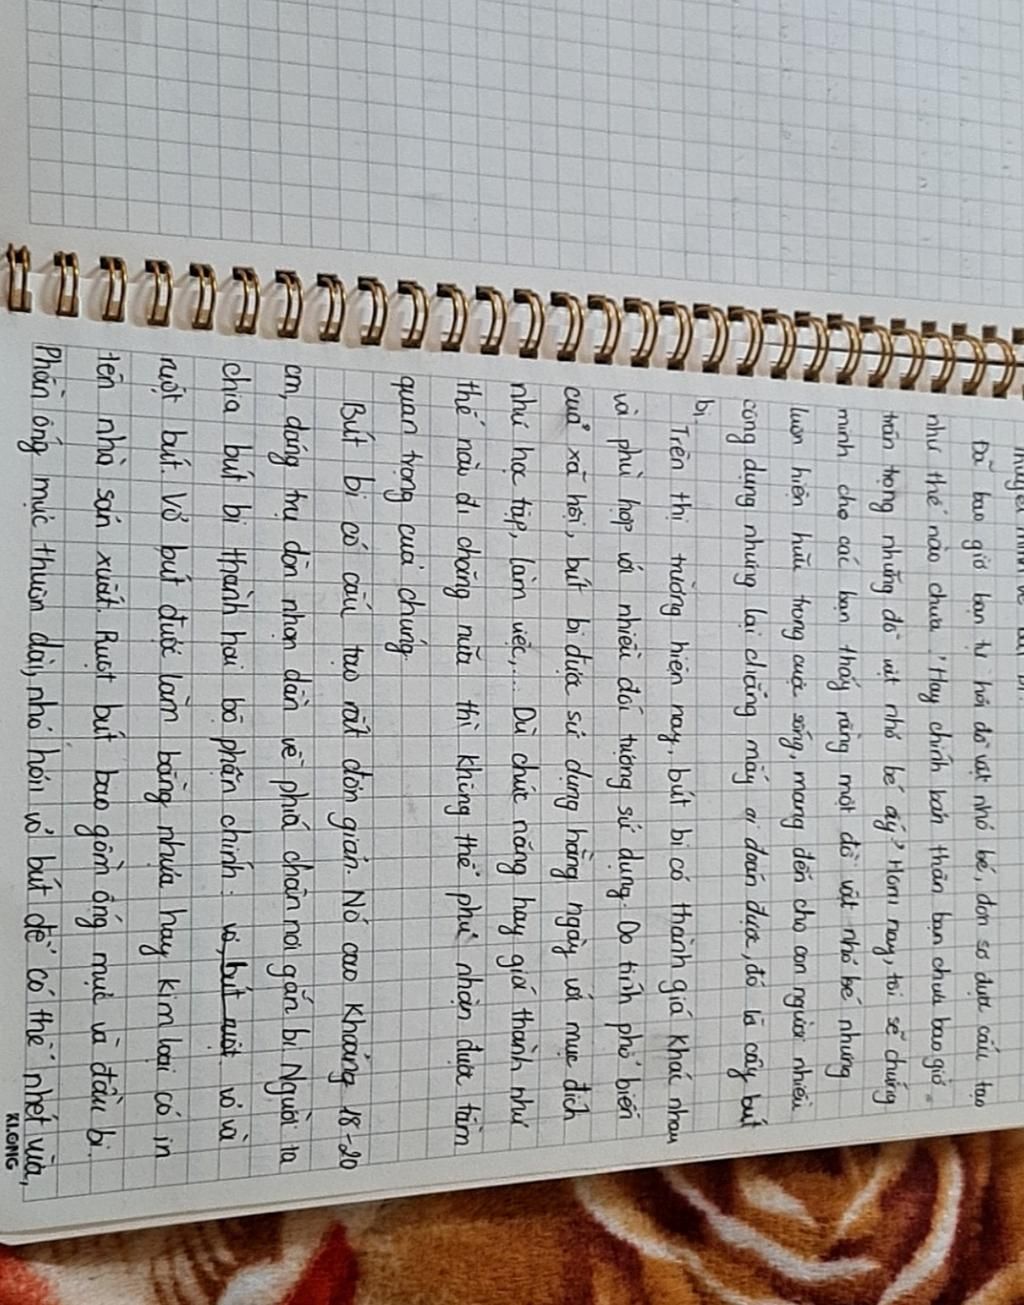 Đã bao giờ bạn tự hỏi đồ vật nhỏ bé, đơn sơ được cấu tạo
như thế nào chưa? Hay chính bản thân bạn chưa bao giờ
trân trọng những đồ vật nhỏ bé ấy? Hôm nay, tôi sẽ chứng
minh cho các bạn thấy rằng một đồ vật nhỏ bé nhưng
luôn hiện hữu trong cuộc sống, mang đến cho con người nhiều
công dụng nhưng lại chẳng mấy ai đoán được, đó là cây bút
bi.
Trên thị trường hiện nay, bút bi có thành giá khác nhau
và phù hợp với nhiều đối tượng sử dụng. Do tính phổ biến
của xã hội, bút bi được sử dụng hằng ngày với mục đích
như học tập, làm việc,... Dù chức năng hay giá thành như
thế nào đi chăng nữa thì không thể phủ nhận được tầm
quan trọng của chúng.
Bút bi có cấu tạo rất đơn giản. Nó cao khoảng 18-20
cm, dáng trụ dọn nhọn dần về phía chân nơi gắn bi. Người ta
chia bút bi thành hai bộ phận chính: vỏ và
ruột bút. Vỏ bút được làm bằng nhựa hay kim loại có in
tên nhà sản xuất. Ruột bút bao gồm ống mực và đầu bi.
Phần ống mực thuôn dài, nhỏ hơn vỏ bút để có thể nhét vừa,
KLONG